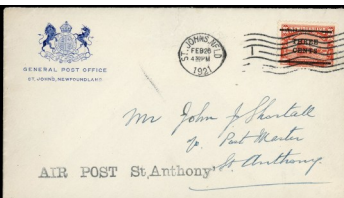 GENERAL POST OFFICE
ST. JOHNS, NEWFOUNDLAND.
ST. JOHN'S, NFLD
FEB 26
4.30PM
1921
1
THREE
CENTS
Mr John J Shortall
c/o Post Master
St. Anthony
AIR POST St, Anthony